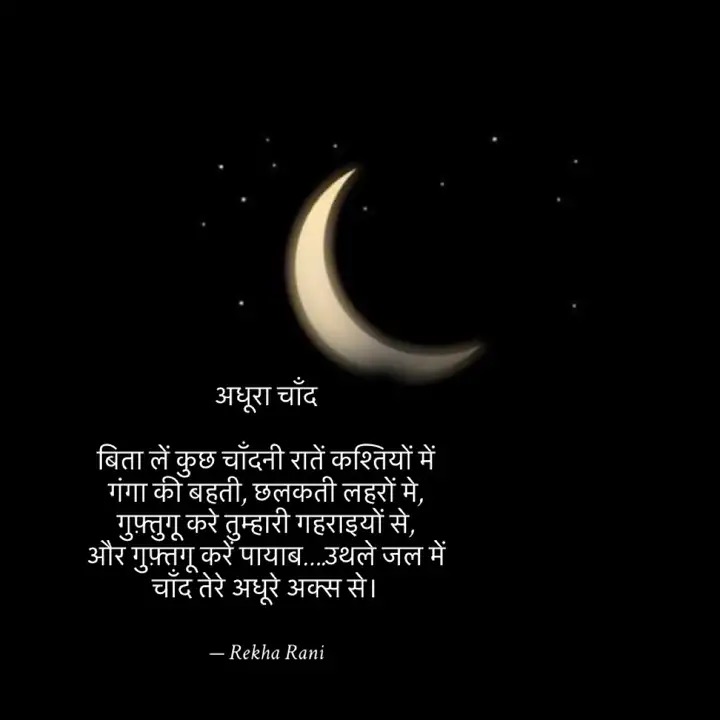 अधूरा चाँद
बिता लें कुछ चाँदनी रातें कश्तियों में
गंगा की बहती, छलकती लहरों मे,
गुफ़्तुगू करे तुम्हारी गहराइयों से,
और गुफ़्तगू करें पायाब....उथले जल में
चाँद तेरे अधूरे अक्स से।
— Rekha Rani